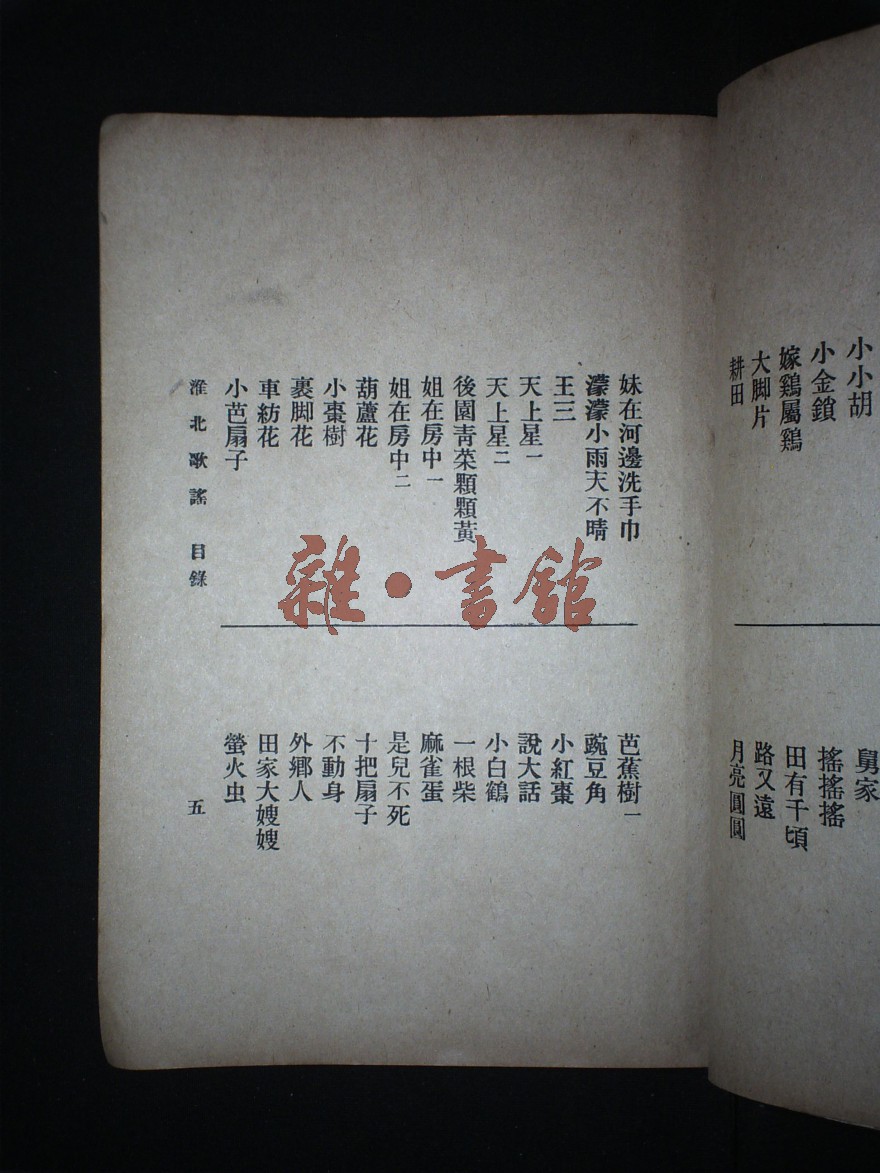 小小胡
小金鎖
嫁鷄屬鷄
大脚片
耕田
舅家
搖搖搖
田有千頃
路又遠
月亮圓圓
妹在河邊洗手巾
濛濛小雨天不晴
王三
天上星一
天上星二
後園青菜顆顆黃
姐在房中一
姐在房中二
葫蘆花
小棗樹
裹脚花
車紡花
小芭扇子
芭蕉樹一
豌豆角
小紅棗
說大話
小白鶴
一根柴
麻雀蛋
是兒不死
十把扇子
不動身
外鄉人
田家大嫂嫂
螢火虫
淮北歌謠 目錄
五
雜·書館